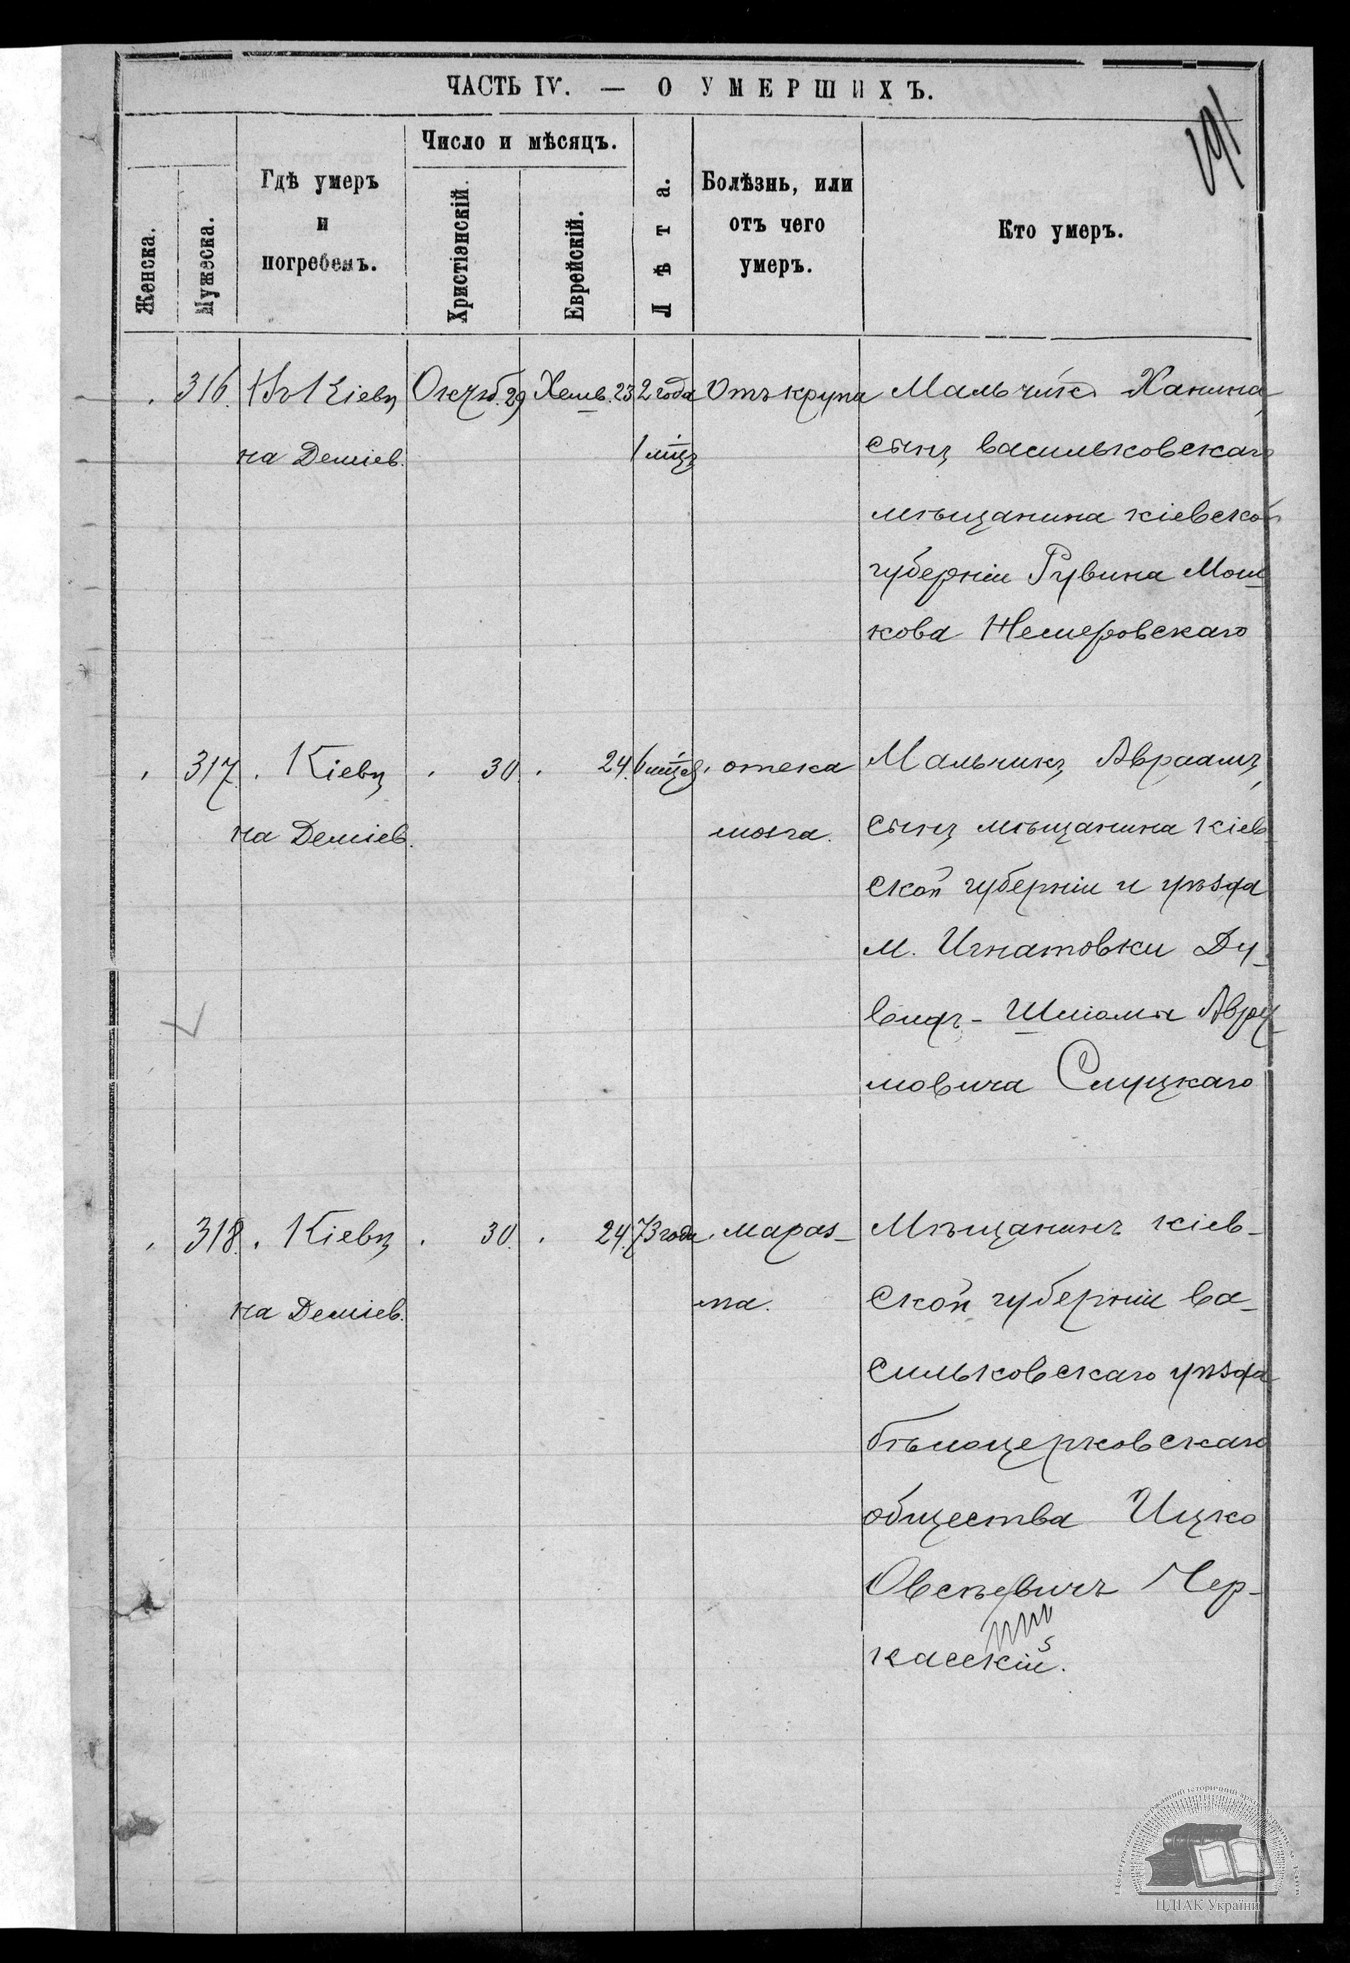 ЧАСТЬ IV. — О УМЕРШИХЪ.
191
Женска.
Мужеска.
Гдѣ умеръ
и
погребенъ.
Число и мѣсяцъ.
Христіанскій.
Еврейскій.
Лѣта.
Болѣзнь, или
отъ чего
умеръ.
Кто умеръ.
316. Въ Кіевѣ Октяб. 29 Хешв. 23 2 года Отъ крупа Мальчикъ Ханина
на Деміев. 1 мѣц. сынъ васильковскаго
мѣщанина кіевской
губерніи Рувина Мош
кова Немеровскаго
317. Кіевѣ 30. 24. 6 мѣцев. отека Мальчикъ Авраамъ,
на Деміев. мозга. сынъ мѣщанина Кіев
ской губерніи и уѣзда
м. Игнатовки Ду-
видъ-Шліомы Авру
мовича Слуцкаго
318. Кіевѣ 30. 24. 73 года. мараз- Мѣщанинъ кіев-
на Деміев. ма. ской губерніи ва-
сильковскаго уѣзда
бѣлоцерковскаго
общества Ицко
Овсѣевичъ Чер-
касскій.
ЦДІАК України